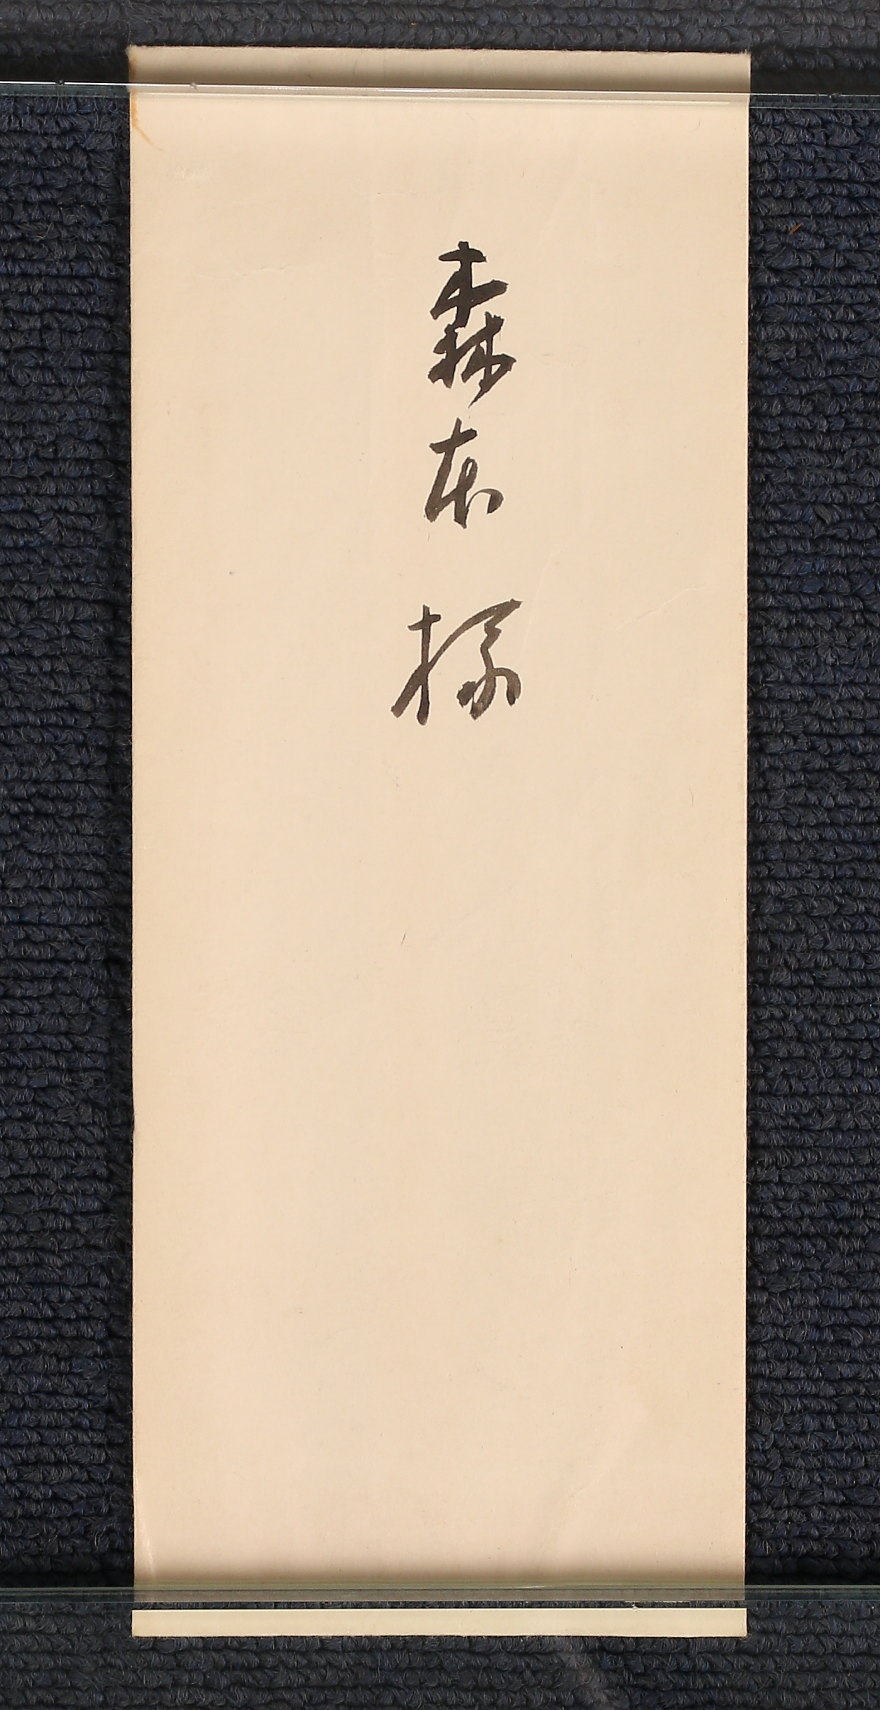 森本様